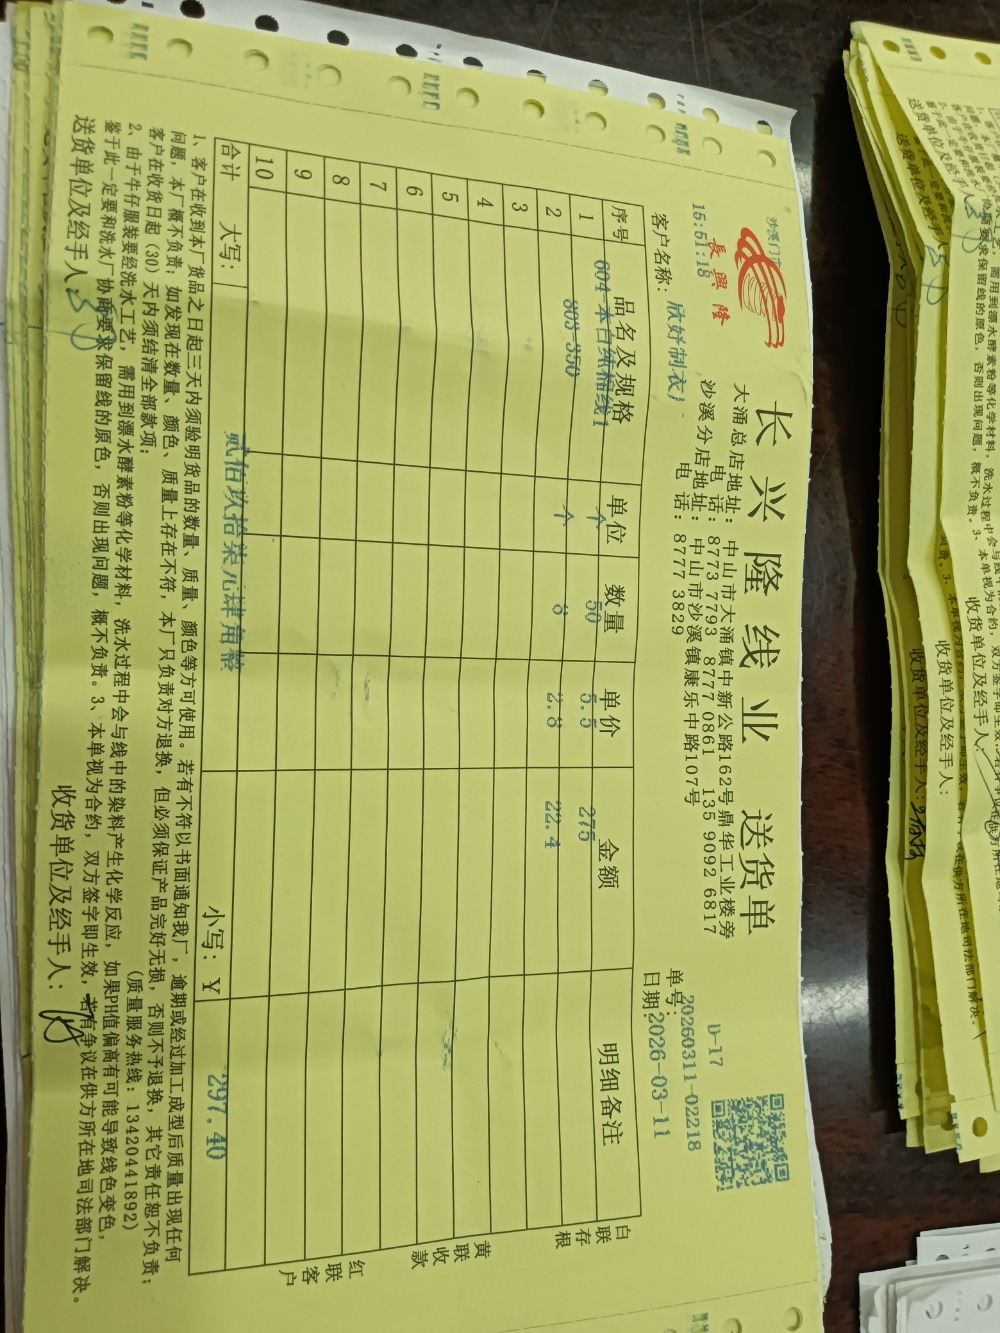 沙溪门市
長興隆
15:51:18
长兴隆线业 送货单
大涌总店地址：中山市大涌镇中新公路162号鼎华工业楼旁
电话：8773 7793 8777 0861 135 9092 6817
沙溪分店地址：中山市沙溪镇康乐中路107号
电话：8777 3829
D-17
单号：20260311-02218
客户名称：欣好制衣厂
日期：2026-03-11
序号 品名及规格 单位 数量 单价 金额 明细备注
1 604-本白纯棉线1 个 50 5.5 275
2 803-350 个 8 2.8 22.4
3
4
5
6
7
8
9
10
合计 大写：贰佰玖拾柒元肆角整 小写：￥ 297.40
白联存根
黄联收款
红联客户
1、客户在收到本厂货品之日起三天内须验明货品的数量、质量、颜色等方可使用。若有不符以书面通知我厂，逾期或经过加工成型后质量出现任何
问题，本厂概不负责；如发现在数量、颜色、质量上存在不符，本厂只负责对方退换，但必须保证产品完好无损，否则不予退换，其它责任恕不负责；
客户在收货日起（30）天内须结清全部款项；
（质量服务热线：13420441892）
2、由于牛仔服装要经洗水工艺，需用到漂水酵素粉等化学材料，洗水过程中会与线中的染料产生化学反应，如果PH值偏高有可能导致线色变色，
鉴于此一定要和洗水厂协商要求保留线的原色，否则出现问题，概不负责。3、本单视为合约，双方签字即生效，若有争议在供方所在地司法部门解决。
送货单位及经手人：
收货单位及经手人：
送货单位及经手人
收货单位及经手人：
收货单位及经手人：